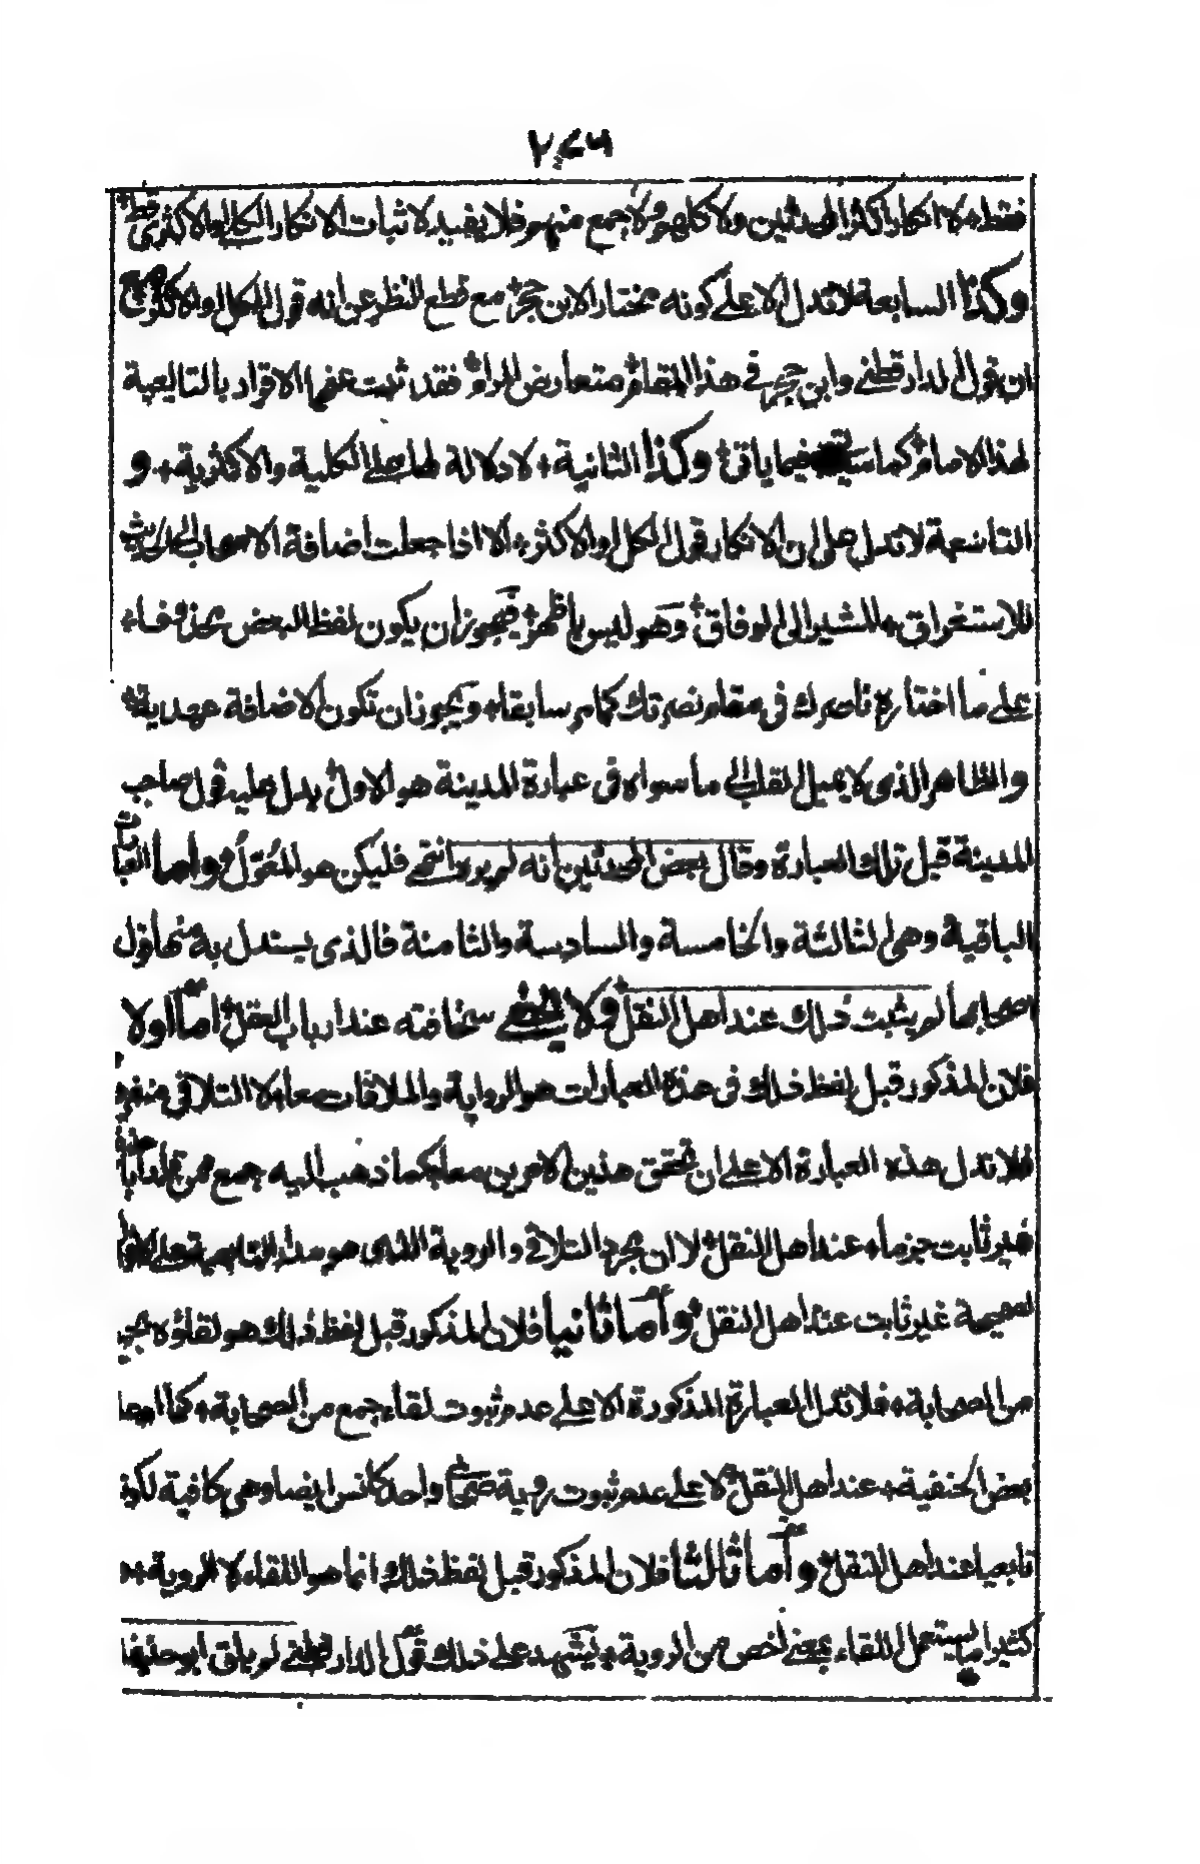 ٢٧٦
فقط لا انكار اكثر المحدثين ولا كلهم ولا جمع منهم فلا يفيد لاثبات الانكار الكلي والاكثري قط
وكذا السابعة لا تدل الا على كونه مختار الابن حجر مع قطع النظر عن انه قول الكل والاكثر مع
ان قول الدارقطني وابن حجر في هذا المقام متعارض المرام فقد ثبت عنهما الاقرار بالتابعية
لهذا الامام كما فيما ياتي وكذا الثانية لا دلالة لها على الكلية والاكثرية و
التاسعة لا تدل على ان الانكار قول الكل والاكثر الا اذا جعلت اضافة الاصحاب الى الحديث
للاستغراق المشير الى الوفاق وهو ليس باظهر فيجوز ان يكون لفظ البعض محذوفا
على ما اختاره ناصرك في مقام نصرتك كما مر سابقا ويجوز ان تكون الاضافة عهدية
والظاهر الذي لا يميل القلب الى ما سواه في عبارة المدينة هو الاول يدل عليه قول صاحب
المدينة قبل تلك العبارة وقال بعض المحدثين انه لم يره انتهى فليكن هو المعول واما العبارات
الباقية وهي الثالثة والخامسة والسادسة والثامنة فالذي يستدل به منها قول
اصحابها لم يثبت ذلك عند اهل النقل ولا يخفى سخافته عند ارباب العقل اما اولا
فلان المذكور قبل لفظ ذلك في هذه العبارات هو الرواية والملاقات معا لا التلاقي منفردا
فلا تدل هذه العبارة الا على ان تحقق هذين الامرين معا كما ذهب اليه جمع من
غير ثابت جزما عند اهل النقل لا ان مجرد التلاقي والروية الذي هو مدار التابعية على
صحيحة غير ثابت عند اهل النقل واما ثانيا فلان المذكور قبل لفظ ذلك هو لقاؤه بجمع
من الصحابة فلا تدل العبارة المذكورة الا على عدم ثبوت لقاء جمع من الصحابة كما
بعض الحنفية عند اهل النقل لا على عدم ثبوت روية صحابي واحد كانس ايضا وهي كافية لكونه
تابعيا عند اهل النقل واما ثالثا فلان المذكور قبل لفظ ذلك انما هو اللقاء لا الروية
كثيرا ما يستعمل اللقاء بمعنى اخص من الروية ويشهد على ذلك قول الدارقطني لم يلق ابو حنيفة